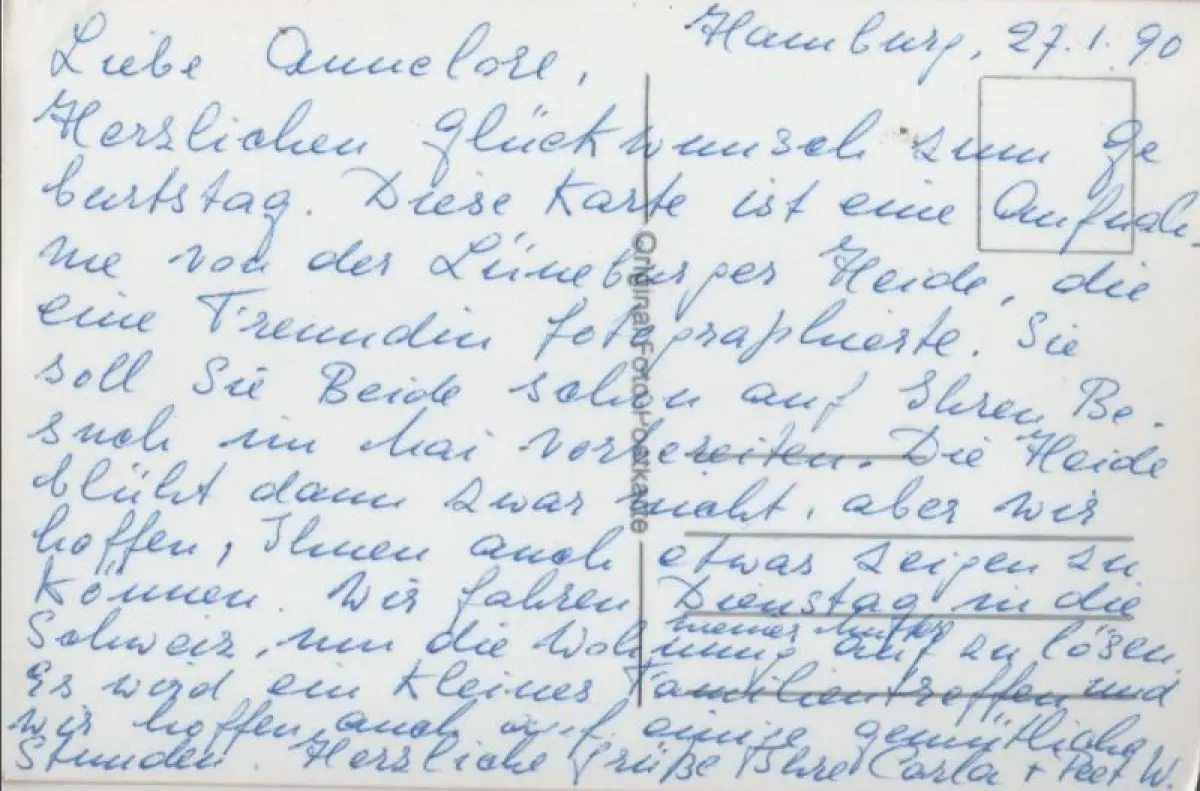 Hamburg, 27.1.90
Liebe Annelore,
Herzlichen Glückwunsch zum Ge
burtstag. Diese Karte ist eine Aufnah-
me von der Lüneburger Heide, die
eine Freundin fotographierte. Sie
soll Sie Beide schon auf Ihren Be-
such im Mai vorbereiten. Die Heide
blüht dann zwar nicht, aber wir
hoffen, Ihnen auch etwas zeigen zu
können. Wir fahren Dienstag in die
meiner Mutter
Schweiz, um die Wohnung auf zu lösen.
Es wird ein kleines Familientreffen und
wir hoffen auch auf einige gemütliche
Stunden. Herzliche Grüße Ihre Carla + Peet W.
Original-Foto-Postkarte